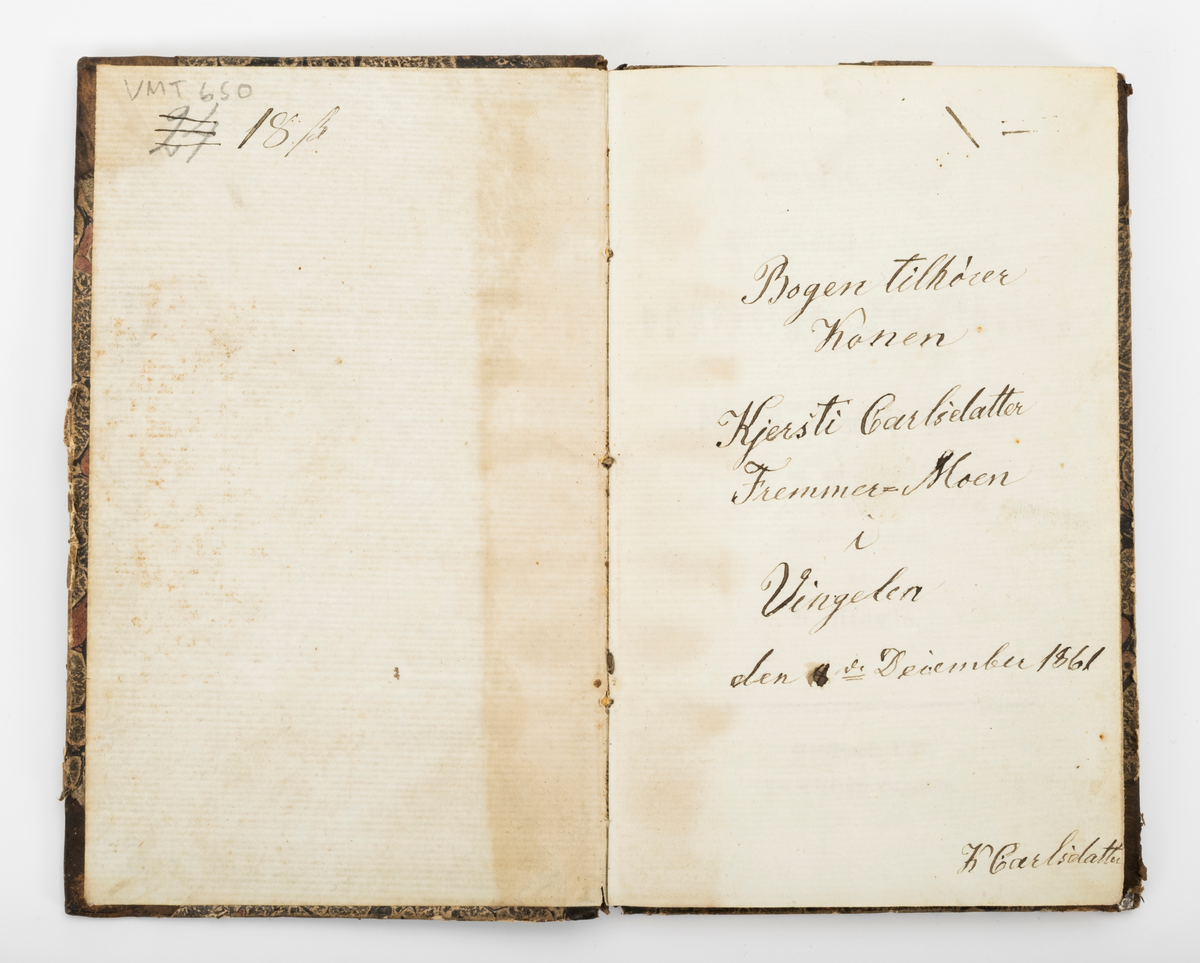 VMT 650
24 18 ß
Bogen tilhører
Konen
Kjersti Carlsdatter
Fremmer= Moen
i
Vingelen
den 8de December 1861
K Carlsdatter